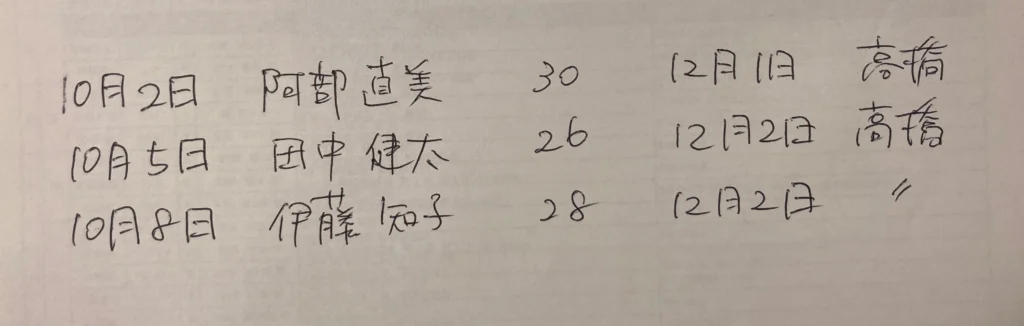 10月2日 阿部 直美 30 12月1日 高橋
10月5日 田中 健太 26 12月2日 高橋
10月8日 伊藤 知子 28 12月2日 〃